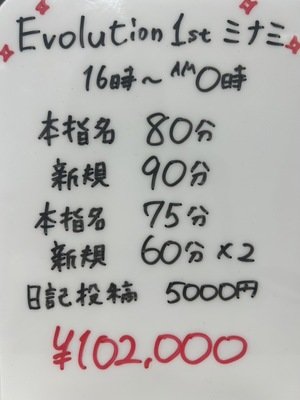 Evolution 1st ミナミ
16時～AM0時
本指名 80分
新規 90分
本指名 75分
新規 60分×2
日記投稿 5000円
¥102,000